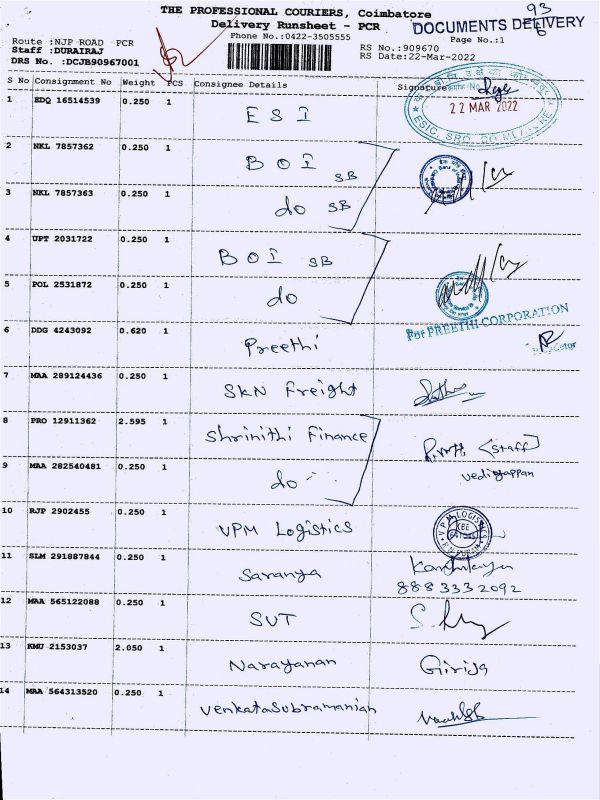 THE PROFESSIONAL COURIERS, Coimbatore
Delivery Runsheet - PCR
DOCUMENTS DELIVERY
93
Phone No.:0422-3505555
Page No.:1
Route :NJP ROAD PCR
Staff :DURAIRAJ
DRS No. :DCJB90967001
RS No.:909670
RS Date:22-Mar-2022
S No Consignment No Weight PCS Consignee Details Signature
22 MAR 2022
1 EDQ 16514539 0.250 1 E S I
2 NKL 7857362 0.250 1 B O I SB
3 NKL 7857363 0.250 1 do SB
4 UPT 2031722 0.250 1 B O I SB
5 POL 2531872 0.250 1 do
For PREETHI CORPORATION
6 DDG 4243092 0.620 1 Preethi
7 MAA 289124436 0.250 1 SKN Freight
8 PRO 12911362 2.595 1 Shrinithi Finance (Staff)
vediyappan
9 MAA 282540481 0.250 1 do
10 RJP 2902455 0.250 1 VPM Logistics
11 SLM 291887844 0.250 1 Saranya
8883332092
12 MAA 565122088 0.250 1 SUT
13 KMU 2153037 2.050 1 Narayanan Girija
14 MAA 564313520 0.250 1 Venkatasubramanian